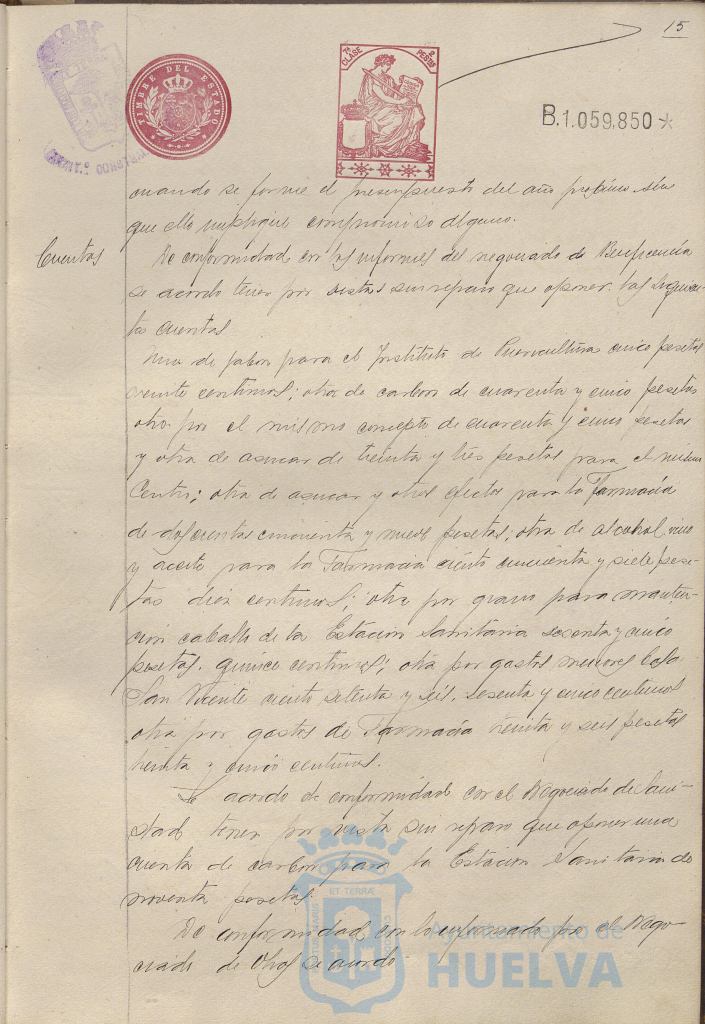 15
TIMBRE DEL ESTADO
7ª CLASE
2 PESTAS
B.1.059,850
cuando se forme el presupuesto del año próximo sin
que ello implique compromiso alguno.
Cuentas
De conformidad con los informes del negociado de Beneficencia
se acordo tener por vistas sin reparo que oponer las siguien-
tes cuentas
Una de jabon para el Instituto de Puericultura cinco pesetas
veinte centimos; otra de carbon de cuarenta y cinco pesetas
otra por el mismo concepto de cuarenta y cinco pesetas
y otra de azucar de treinta y tres pesetas para el mismo
Centro; otra de azucar y otros efectos para la Farmacia
de doscientas cincuenta y nueve pesetas; otra de alcohol vino
y aceite para la Farmacia ciento cincuenta y siete pese-
tas diez centimos; otra por grano para manten-
cion caballo de la Estacion Sanitaria sesenta y cinco
pesetas quince centimos; otra por gastos menores Casa
San Vicente ciento setenta y seis, sesenta y cinco centimos
otra por gastos de Farmacia treinta y seis pesetas
treinta y cinco centimos.
Se acordo de conformidad con el Negociado de Sani-
dad tener por vista sin reparo que oponer una
cuenta de carbon para la Estacion Sanitaria de
noventa pesetas.
De conformidad con lo informado por el Nego-
ciado de Obras se acordo
Ayuntamiento de
HUELVA